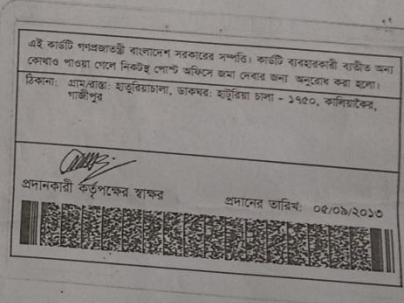 এই কার্ডটি গণপ্রজাতন্ত্রী বাংলাদেশ সরকারের সম্পত্তি। কার্ডটি ব্যবহারকারী ব্যতীত অন্য
কোথাও পাওয়া গেলে নিকটস্থ পোস্ট অফিসে জমা দেবার জন্য অনুরোধ করা হলো।
ঠিকানা: গ্রাম/রাস্তা: হাতুরিয়াচালা, ডাকঘর: হাটুরিয়া চালা - ১৭৫০, কালিয়াকৈর,
গাজীপুর
প্রদানকারী কর্তৃপক্ষের স্বাক্ষর
প্রদানের তারিখ: ০৫/০৯/২০১৩